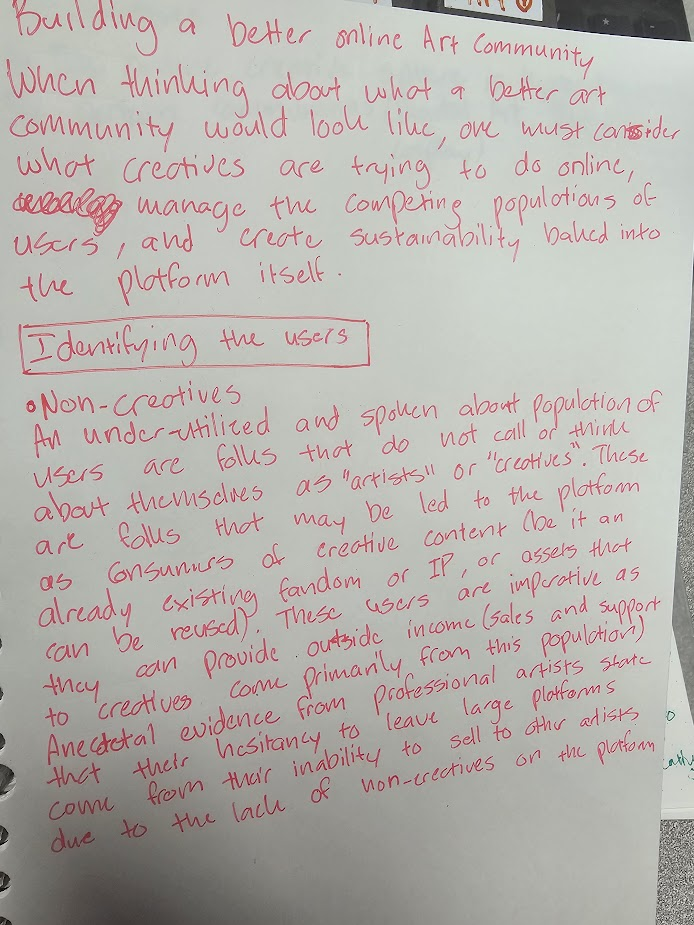 Building a better online Art Community
When thinking about what a better art
community would look like, one must consider
what creatives are trying to do online,
manage the competing populations of
users, and create sustainability baked into
the platform itself.
Identifying the users
•Non-creatives
An under-utilized and spoken about population of
users are folks that do not call or think
about themselves as "artists" or "creatives". These
are folks that may be led to the platform
as consumers of creative content (be it an
already existing fandom or IP, or assets that
can be reused). These users are imperative as
they can provide outside income (sales and support
to creatives come primarily from this population)
Anecdetal evidence from professional artists state
that their hesitancy to leave large platforms
come from their inability to sell to other artists
due to the lack of non-creatives on the platform